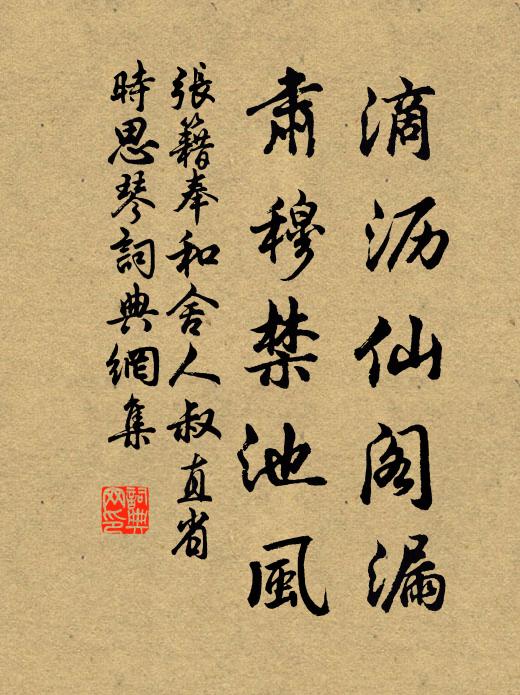 滴沥仙阁漏
肃穆禁池風
張籍奉和舍人叔直省
時思琴詞典網集
詞典网印